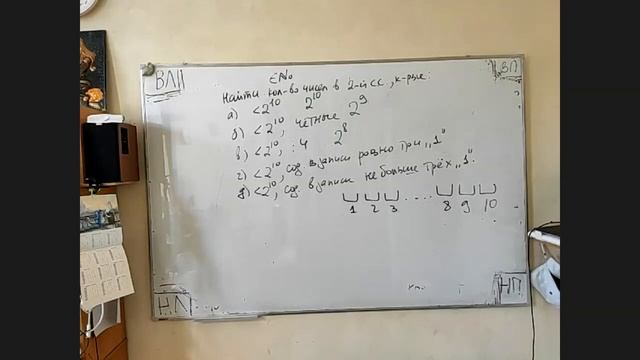 ВЛ
ВП
Найти кол-во чисел в 2-й сс, к-рые:
а) <2^10 2^10
б) <2^10, чётные 2^9
в) <2^10, ⋮4 2^8
г) <2^10, сод в записи ровно три „1"
д) <2^10, сод в записи не больше трёх „1".
1 2 3 .... 8 9 10
НЛ
НП